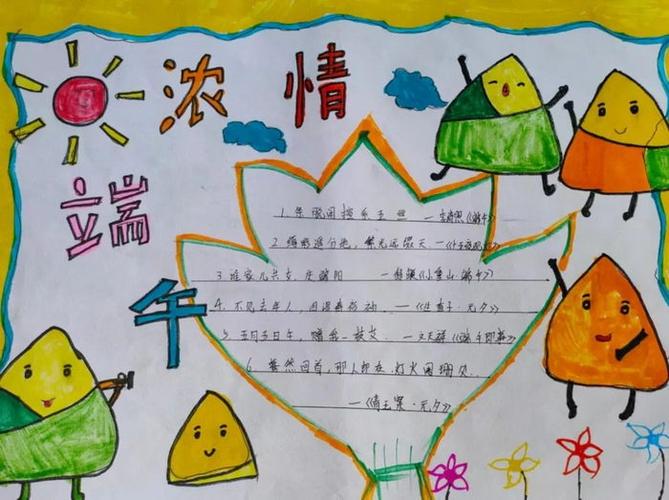 浓情
端午
1. 玉 —《端午》
2. 缛彩遥分地，繁光远缀天 —《十五夜观灯》
3. 谁家儿共女，庆端阳 —《小重山·端午》
4. 不见去年人，泪湿春衫袖 —《生查子·元夕》
5. 五月五日午，赠我一枝艾 —文天祥《端午即事》
6. 蓦然回首，那人却在，灯火阑珊处.
—《青玉案·元夕》